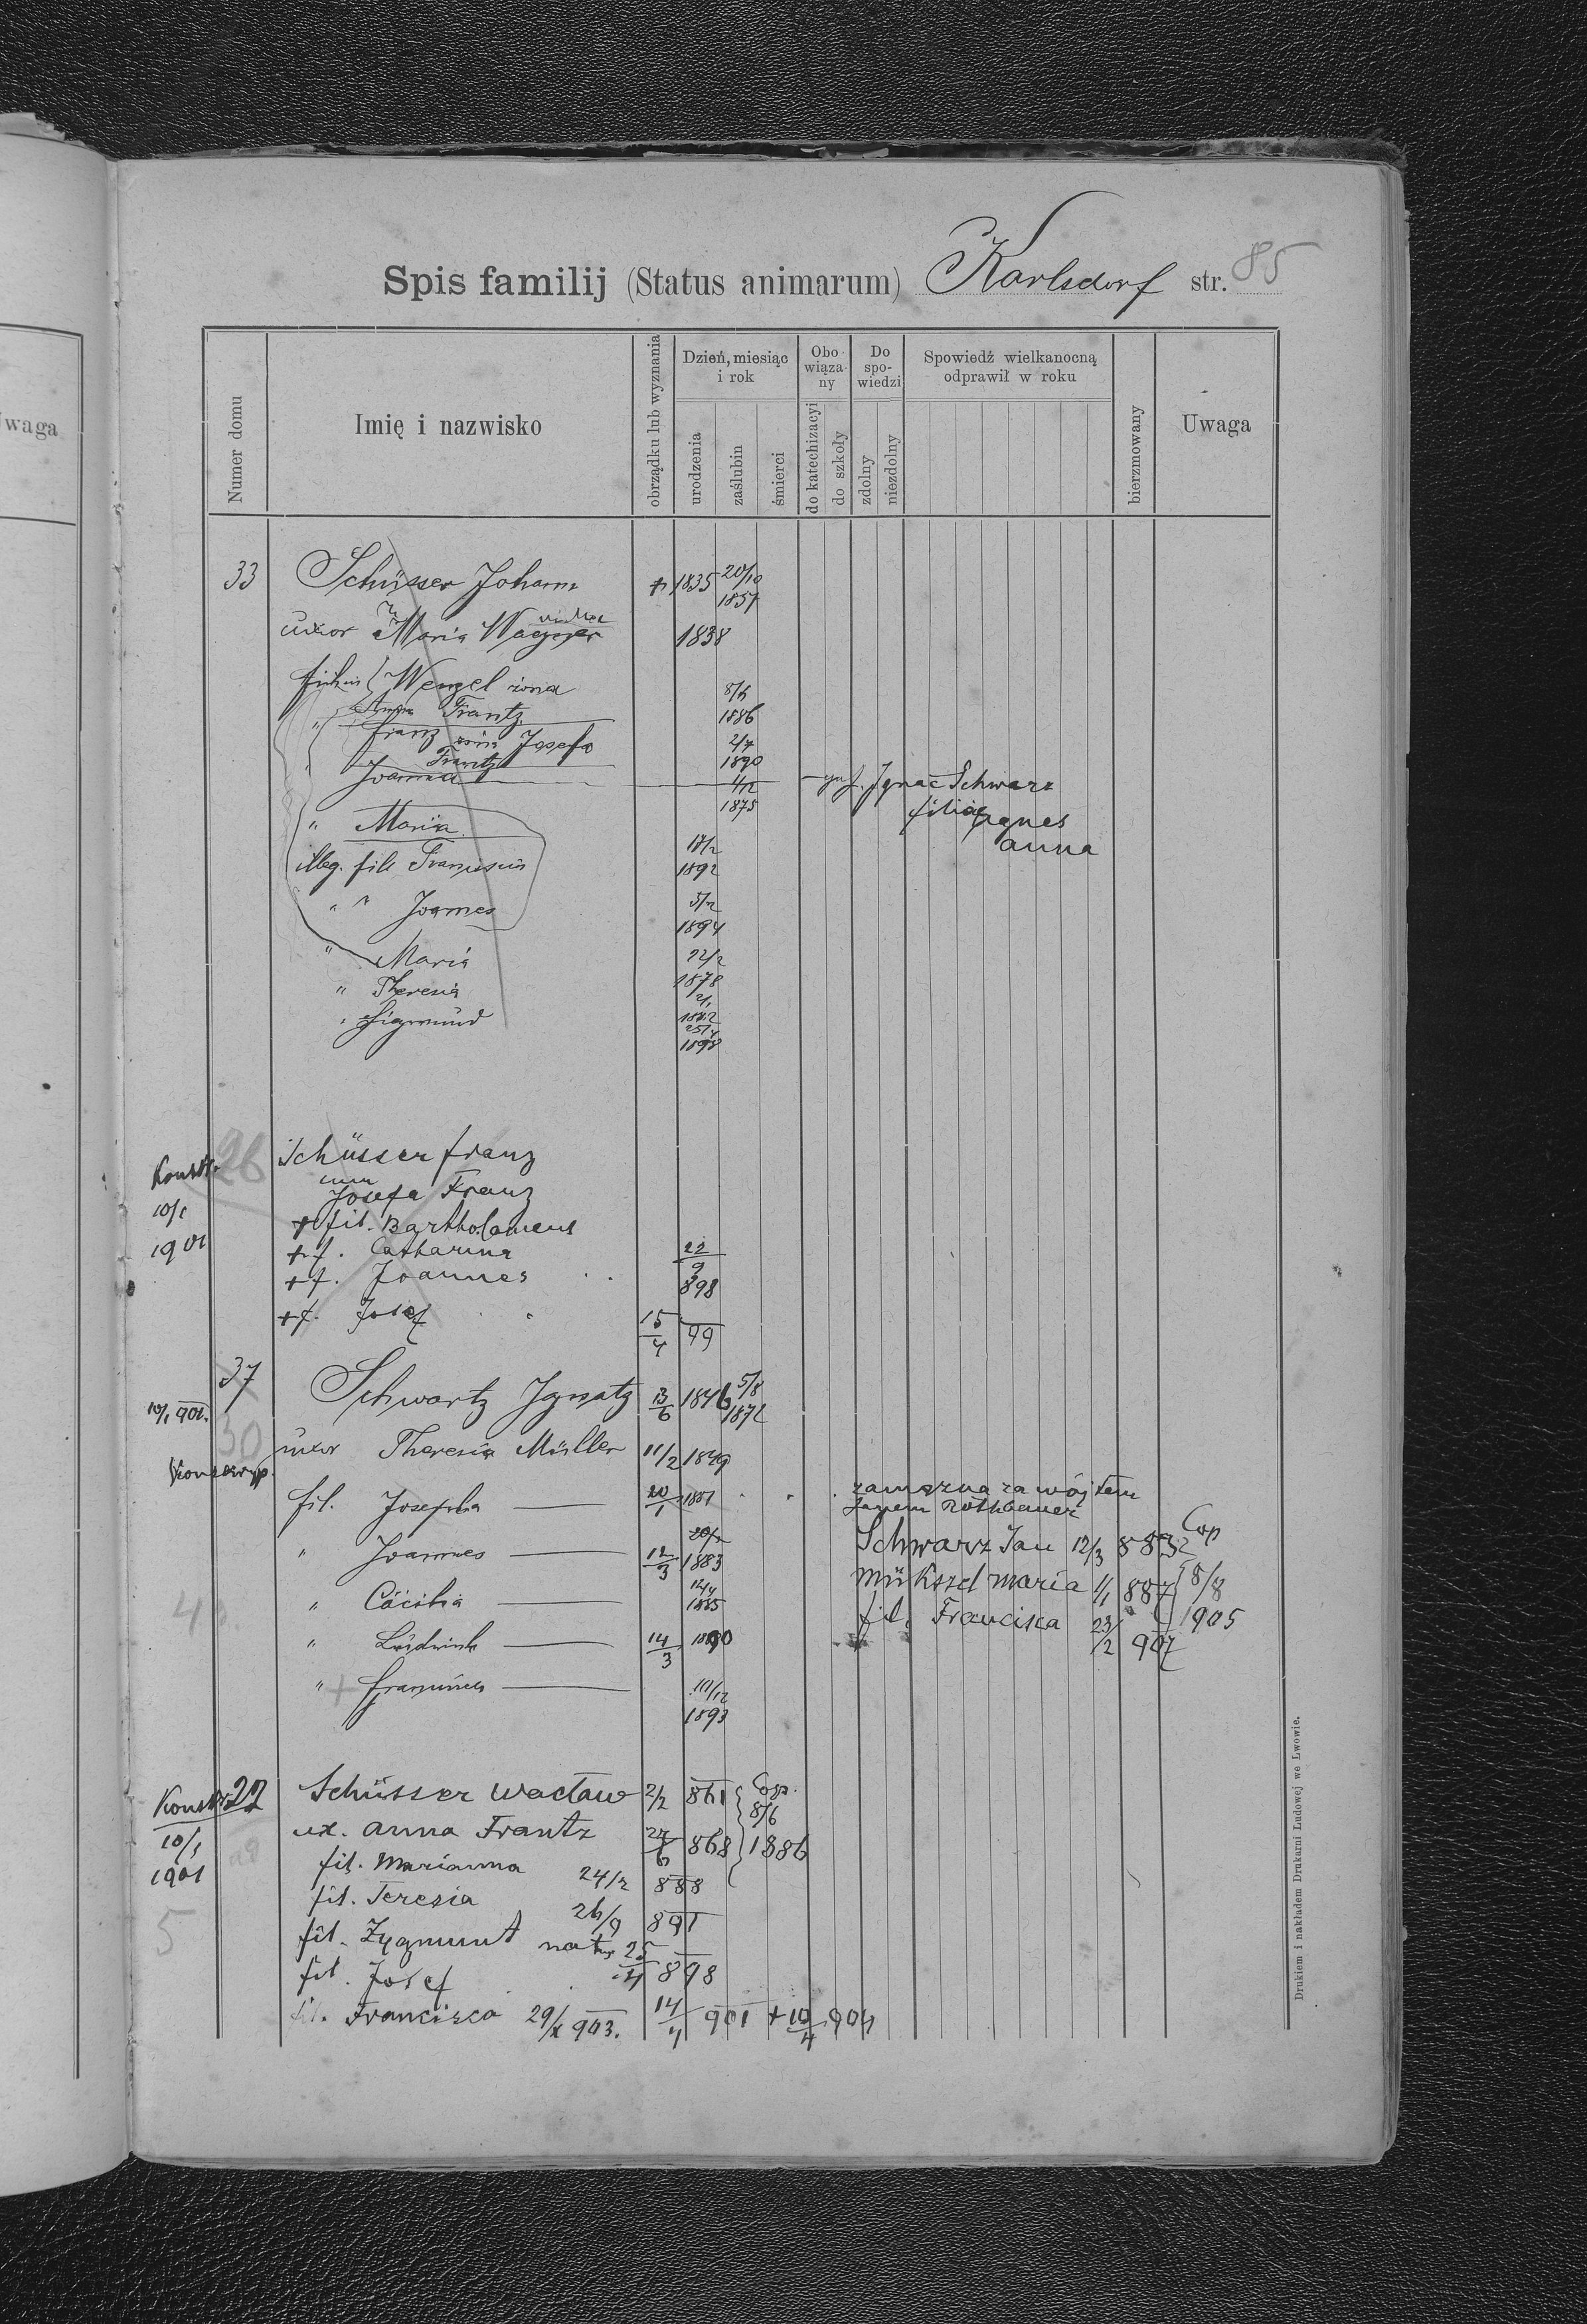 Spis familij (Status animarum) Karlsdorf str. 85
waga
Numer domu
Imię i nazwisko
obrządku lub wyznania
Dzień, miesiąc i rok
urodzenia
zaślubin
śmierci
Obowiązany
do katechizacyi
do szkoły
Do spowiedzi
zdolny
niezdolny
Spowiedź wielkanocną odprawił w roku
bierzmowany
Uwaga
33 Schüsser Johann + 1835 20/10 1857
uxor Maria Wagner 1838
Wenzel żona 8/6
Anna Frantz 1886
" Franz żona Josefa 2/7
Frantz 1890
Joanna 1/12 1875 Ignac Schwarz
filiae Agnes
Anna
" Maria
illeg. fil. 1892
" " Joannes 5/2 1894
" Maria 22/2 1878
" Theresia
" Sigmund 25/4 1898
26 Schüsser Franz
Josefa Franz
10/1 + fil. Bartholomeus
1901 + f. Catharina
+ f. Joannes 22/9 898
+ f. Josef 15/4 99
37 Schwartz Ignatz 13/6 1846 5/8 1872
10/1 901.
30 uxor Theresia Müller 11/2 1849
fil. Josepha 20/1 1881 zamężna za wójtem
Janem Rothbauer
" Joannes 12/3 1883 Schwarz Jan 12/3 883 Cop
" Cäcilia 12/4 1885 Maria 1/1 887 8/8
4 fil. Francisca 23/2 907 1905
" Ludwink 14/3 1890
" + 1893
22 Schüsser Wacław 2/2 861 Cop. 8/6
10/1 ux. Anna Frantz 868 1886
1901 fil. Marianna 24/2 888
fil. Teresia 26/9 891
5 fil. Zygmunt natus 25/4 898
fil. Josef 14/4 901 + 10/4 904
fil. Francisca 29/X 903.
Drukiem i nakładem Drukarni Ludowej we Lwowie.